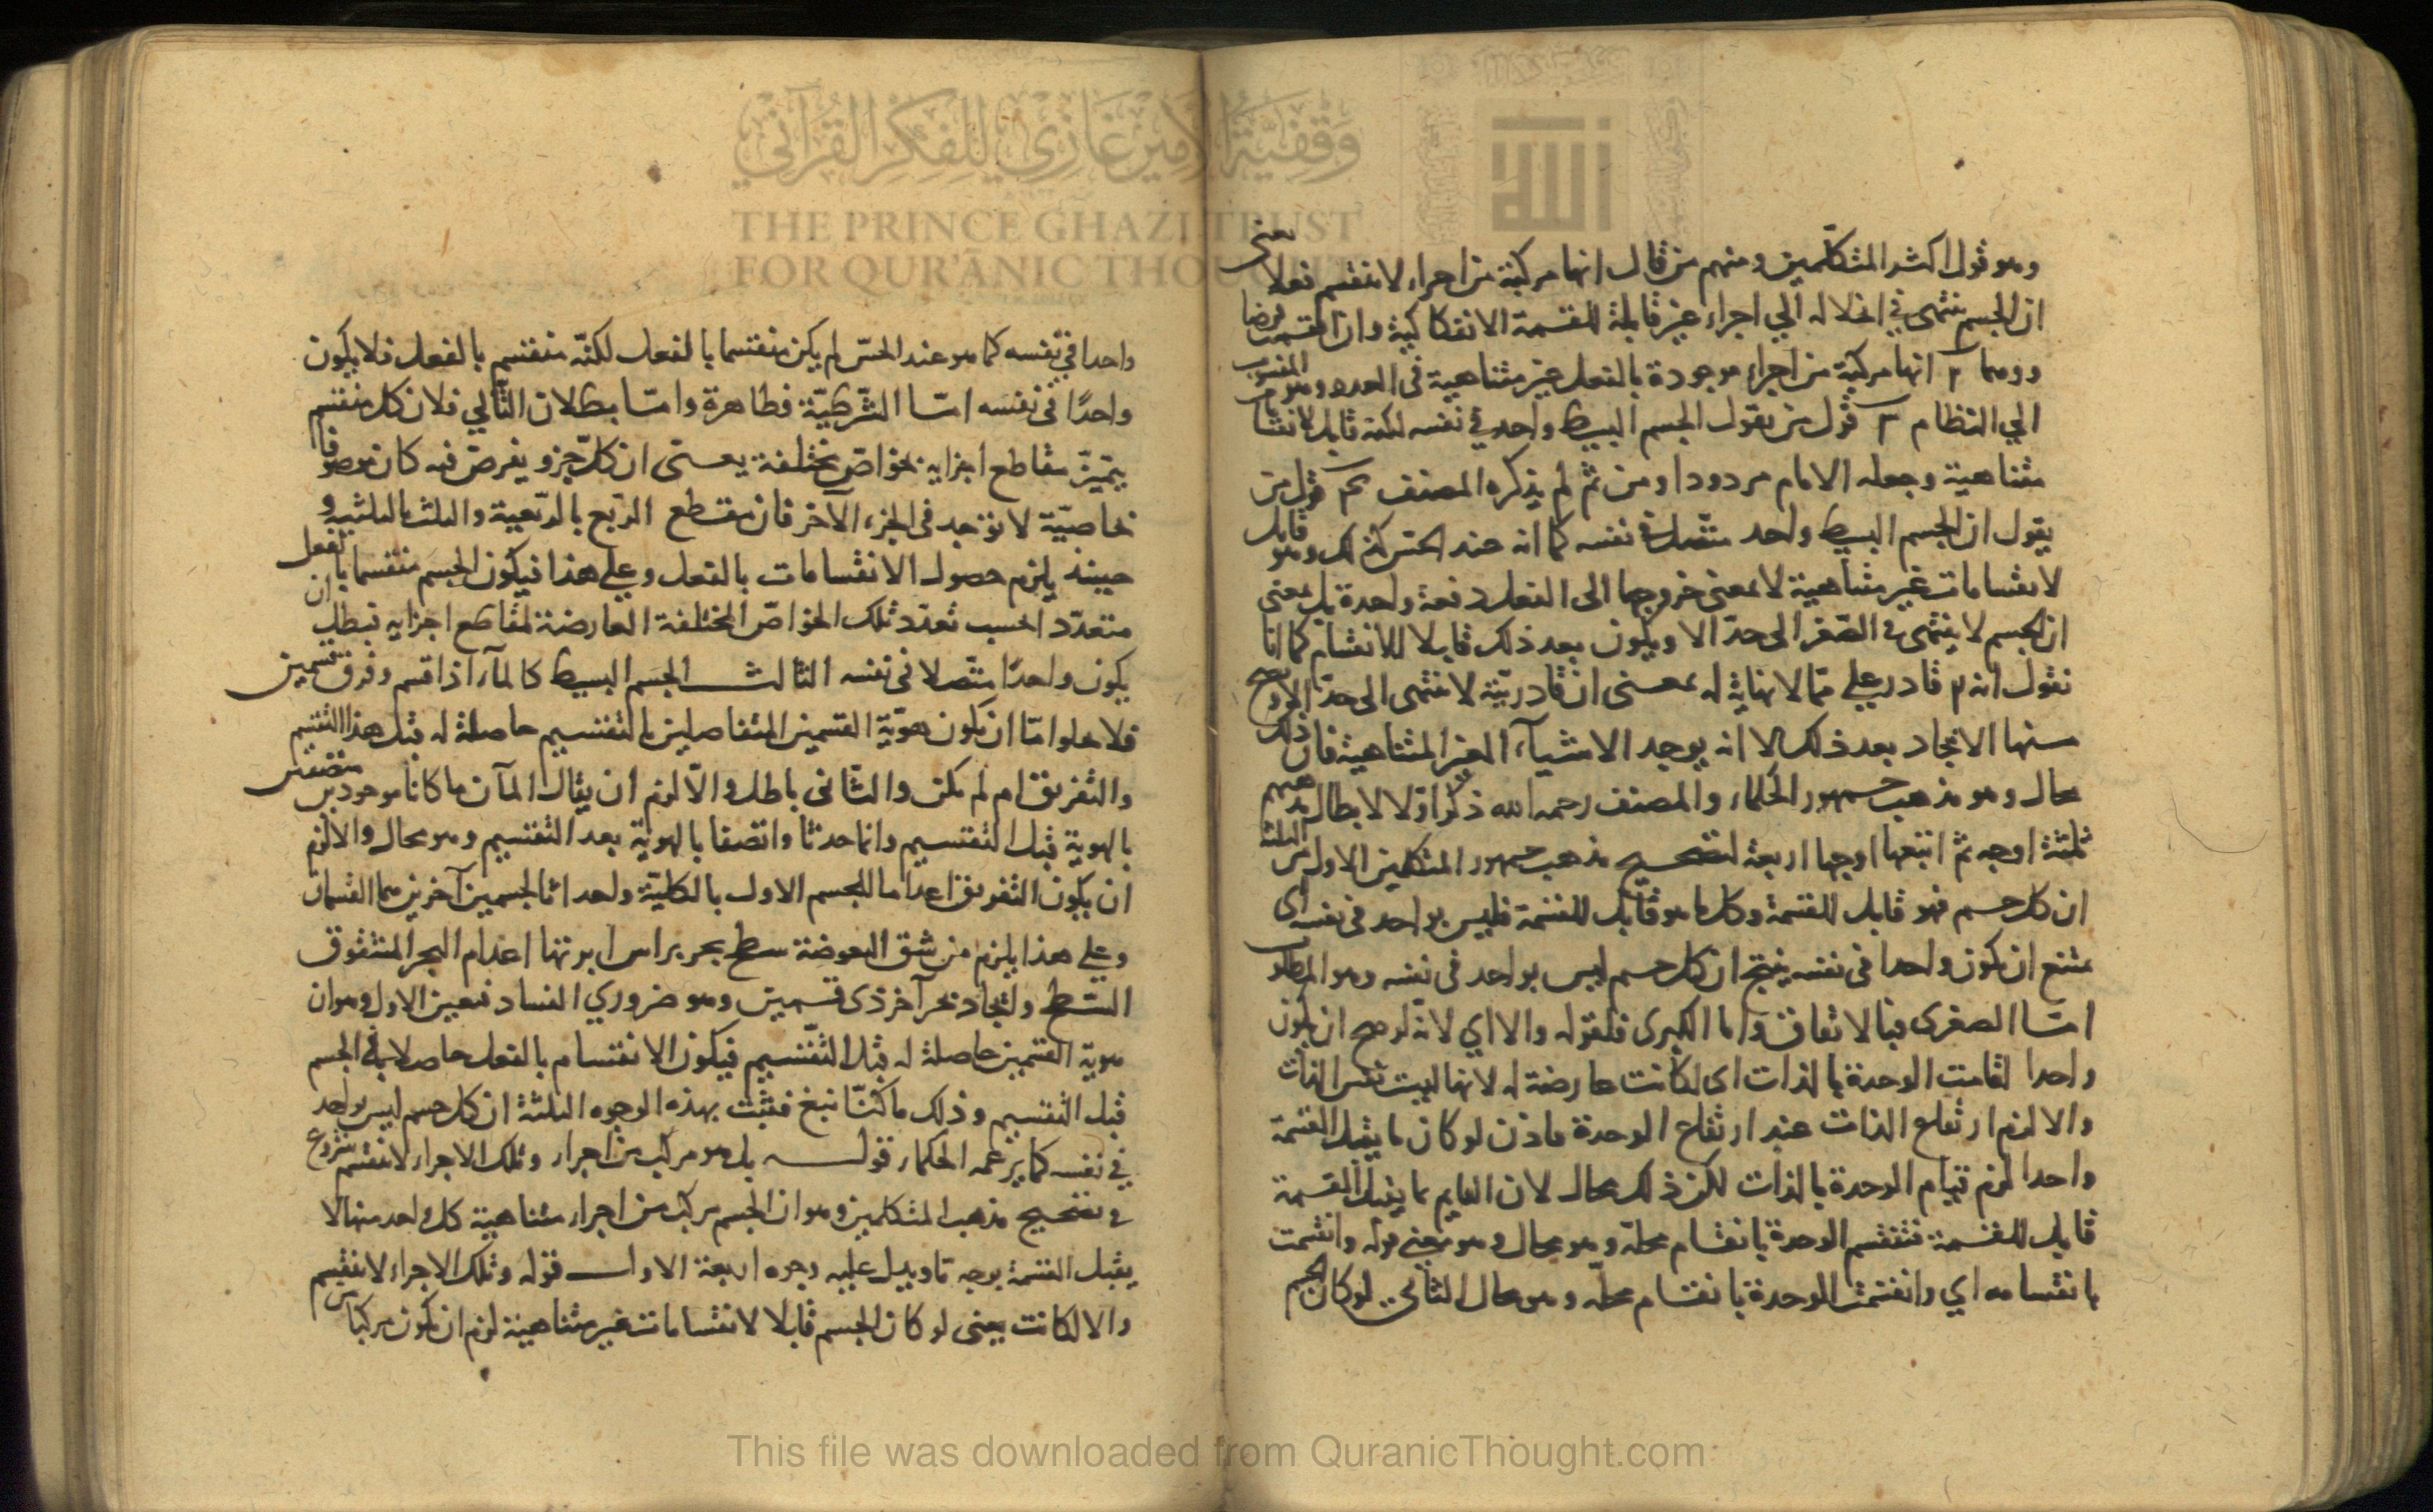 وهو قول اكثر المتكلمين ومنهم من قال انها مركبة من اجزاء لا تنقسم فعلا يعنى
ان الجسم ينتهى في انحلاله الي اجزاء غير قابلة للقسمة الانفكاكية وان انقسمت فرضا
ووهما ٢ انها مركبة من اجزاء موجودة بالفعل غير متناهية في العدد وهو المنسوب
الي النظام ٣ قول من يقول الجسم البسيط واحد في نفسه لكنه قابل لانقسا
متناهية وجعله الامام مردودا ومن ثم لم يذكره المصنف قول من
يقول ان الجسم البسيط واحد متصل في نفسه كما انه عند الحس كذلك وهو قابل
لانقسامات غير متناهية لا بمعنى خروجها الى الفعل دفعة واحدة بل بمعنى
ان الجسم لا ينتهى في الصغر الى حد الا ويكون بعد ذلك قابلا للانقسام كما انا
نقول انه قادر على ما لا نهاية له بمعنى ان قادريته لا تنتهى الى حد الا ويصح
منها الايجاد بعد ذلك لا انه يوجد الاشيآء الغير المتناهية فان ذلك
محال وهو مذهب جمهور الحكماء والمصنف رحمه الله ذكر اولا لابطال مذهبهم
ثلثة اوجه ثم اتبعها اوجها اربعة لتصحيح مذهب جمهور المتكلمين الاول من الثلثة
ان كل جسم فهو قابل للقسمة وكل ما هو قابل للقسمة فليس بواحد في نفسه اى
يمتنع ان يكون واحدا في نفسه ينتج ان كل جسم ليس بواحد في نفسه وهو المطلوب
امّا الصغرى فبالاتفاق واما الكبرى فلقوله والا اي لانه لو صح ان يكون
واحدا لقامت الوحدة بالذات اى لكانت عارضة له لانها ليست نفس الذات
والا لزم ارتفاع الذات عند ارتفاع الوحدة فاذن لو كان ما يقبل القسمة
واحدا لزم قيام الوحدة بالذات لكن ذلك محال لان القايم بما يقبل القسمة
قابل للقسمة فتنقسم الوحدة بانقسام محله وهو محال وهو معنى قوله وانقسمت
بانقسامه اي وانقسمت الوحدة بانقسام محله وهو محال الثاني لو كان الجسم
واحدا في نفسه كما هو عند الحسّ لم يكن منقسما بالفعل لكنّه منقسم بالفعل فلا يكون
واحدًا في نفسه امّا الشّرطيّة فظاهرة وامّا بطلان التّالي فلان كل منقسم
يتميّز مقاطع اجزايه بخواصّ مختلفة يعنى ان كلّ جزو يفرض فيه كان موصوفا
بخاصيّة لا توجد في الجزء الآخر فان مقطع الرّبع بالربعية والثلث بالثلثية و
حينئذ يلزم حصول الانقسامات بالفعل وعلى هذا فيكون الجسم منقسما بالفعل
متعدّدا بحسب تعدّد تلك الخواصّ المختلفة العارضة لمقاطع اجزايه فبطل ان
يكون واحدًا متّصلا في نفسه الثالث الجسم البسيط كالمآء اذا قسم وفرق قسمين
فلا يخلوا امّا ان يكون هويّة القسمين المتفاصلين بالتقسيم حاصلة له قبل هذا التقسيم
والتفريق ام لم يكن والثّانى باطل والّا لزم ان يقال المآن ما كانا موجودين متصفين
بالهوية قبل التقسيم وانما حدثا واتصفا بالهوية بعد التقسيم وهو محال والا لزم
ان يكون التفريق اعداما للجسم الاول بالكليّة واحداثا لجسمين آخرين هما القسمان
وعلى هذا يلزم من شق البعوضة سطح بحر براس ابرتها اعدام البحر المشقوق
السّطح وايجاد بحر آخر ذى قسمين وهو ضروري الفساد فتعين الاول وهو ان
هوية القسمين حاصلة له قبل التّقسيم فيكون الانقسام بالفعل حاصلا في الجسم
قبل التقسيم وذلك ما كنّا نبغ فثبت بهذه الوجوه الثلثة ان كل جسم ليس بواحد
في نفسه كما يزعمه الحكماء قوله بل هو مركب من اجزاء وتلك الاجزاء لا تنقسم شروع
في تصحيح مذهب المتكلمين وهو ان الجسم مركب من اجزاء متناهية كل واحد منها لا
يقبل القسمة بوجه ما ويدل عليه وجوه اربعة الاول قوله وتلك الاجزاء لا تنقسم
والا لكانت يعنى لو كان الجسم قابلا لانقسامات غير متناهية لزم ان يكون مركبا من
وقفية الأمير غازي للفكر القرآني
الله
THE PRINCE GHAZI TRUST
FOR QUR'ĀNIC THOUGHT
This file was downloaded from QuranicThought.com